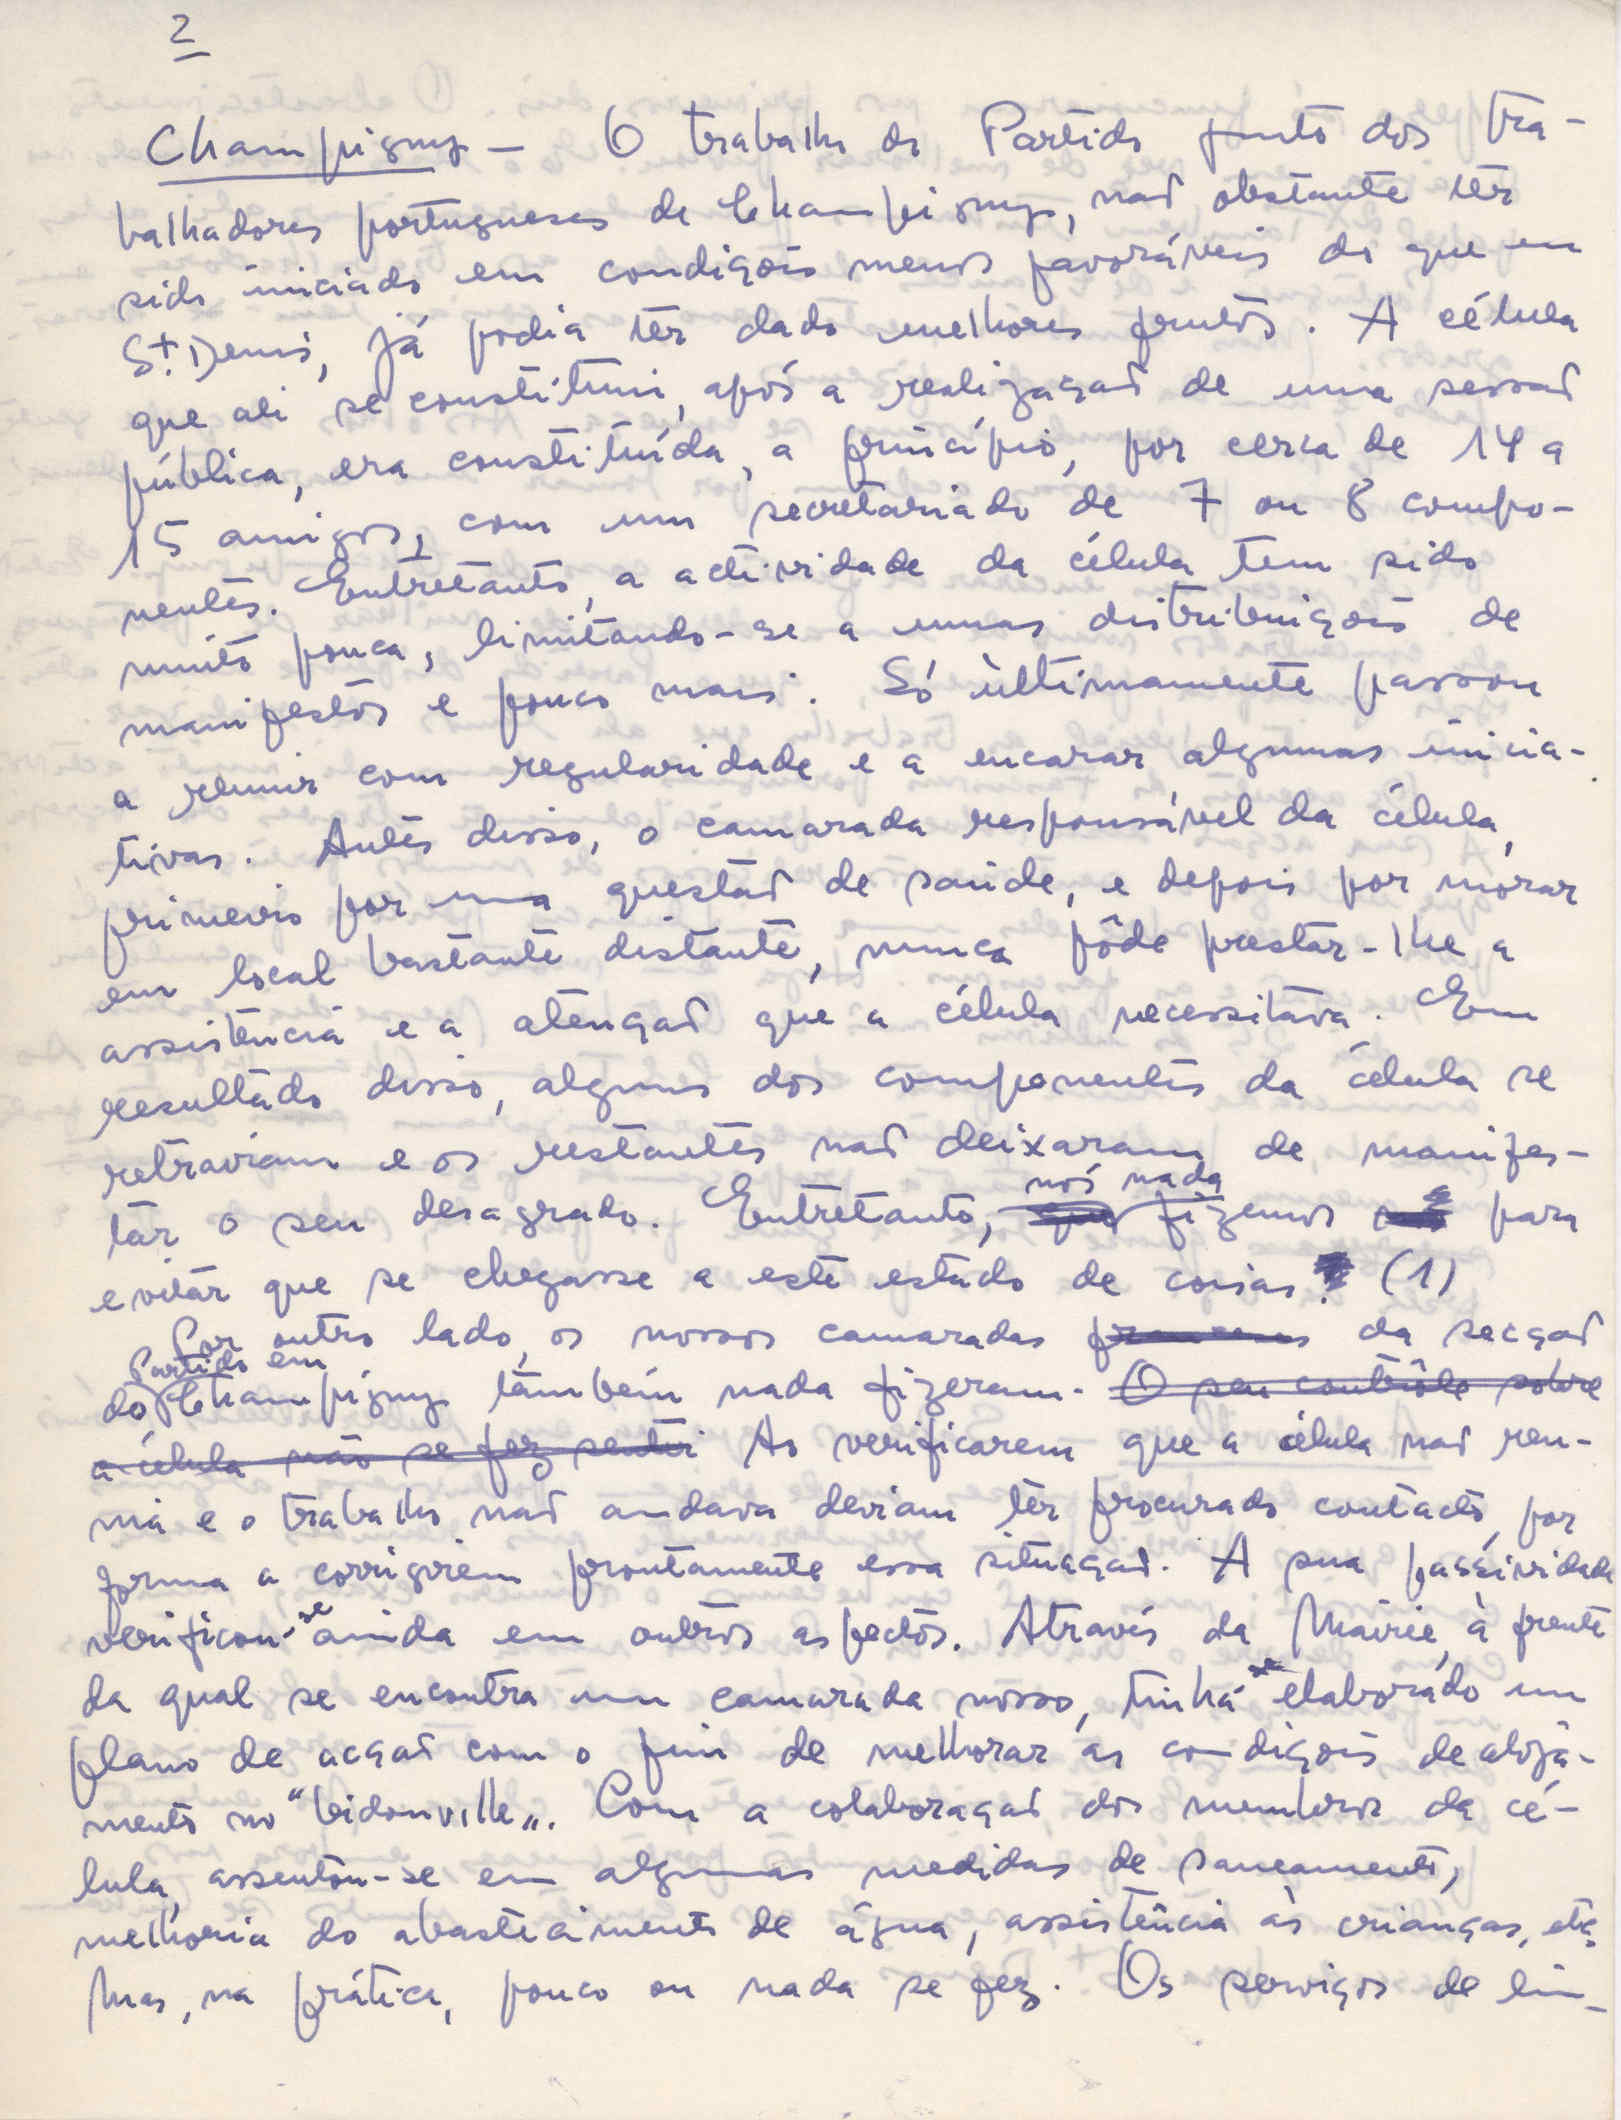 2
Champigny – O trabalho do Partido junto dos tra-
balhadores portugueses de Champigny, não obstante ter
sido iniciado em condições menos favoráveis do que em
St. Denis, já podia ter dado melhores frutos. A célula
que ali se constituiu, após a realização de uma sessão
pública, era constituída, a princípio, por cerca de 14 a
15 amigos, com um secretariado de 7 ou 8 compo-
nentes. Entretanto, a actividade da célula tem sido
muito pouca, limitando-se a umas distribuições de
manifestos e pouco mais. Só ùltimamente passou
a reunir com regularidade e a encarar algumas inicia-
tivas. Antes disso, o camarada responsável da célula,
primeiro por uma questão de saúde, e depois por morar
em local bastante distante, nunca pôde prestar-lhe a
assistência e a atenção que a célula necessitava. Em
resultado disso, alguns dos componentes da célula se
retraviam e os restantes não deixaram de manifes-
nós nada
tar o seu desagrado. Entretanto, que fizemos para
evitar que se chegasse a este estado de coisas? (1)
Por outro lado, os nossos camaradas franceses da secção
Partido em
do Champigny também nada fizeram. O seu contrôle sobre
a célula não se fez sentir Ao verificarem que a célula não reu-
nia e o trabalho não andava deviam ter procurado contacto, por
forma a corrigirem prontamente essa situação. A sua passividade
verificou-se ainda em outros aspectos. Através da Mairie, à frente
da qual se encontra um camarada nosso, tinha se elaborado um
plano de acção com o fim de melhorar as condições de aloja-
mento no "bidonville". Com a colaboração dos membros da cé-
lula, assentou-se em algumas medidas de saneamento,
melhoria do abastecimento de água, assistência às crianças, etc.
Mas, na prática, pouco ou nada se fez. Os serviços de lim-